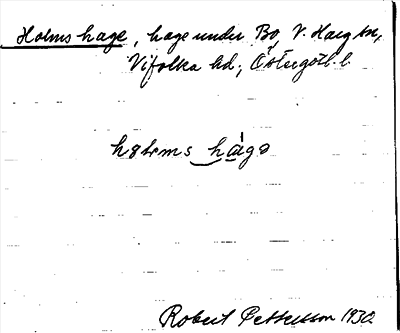 Holms hage, hage under Bo, V. Harg sn,
Vifolka hd; Östergötl. l.
hɷlms hage
Robert Pettersson 1930.